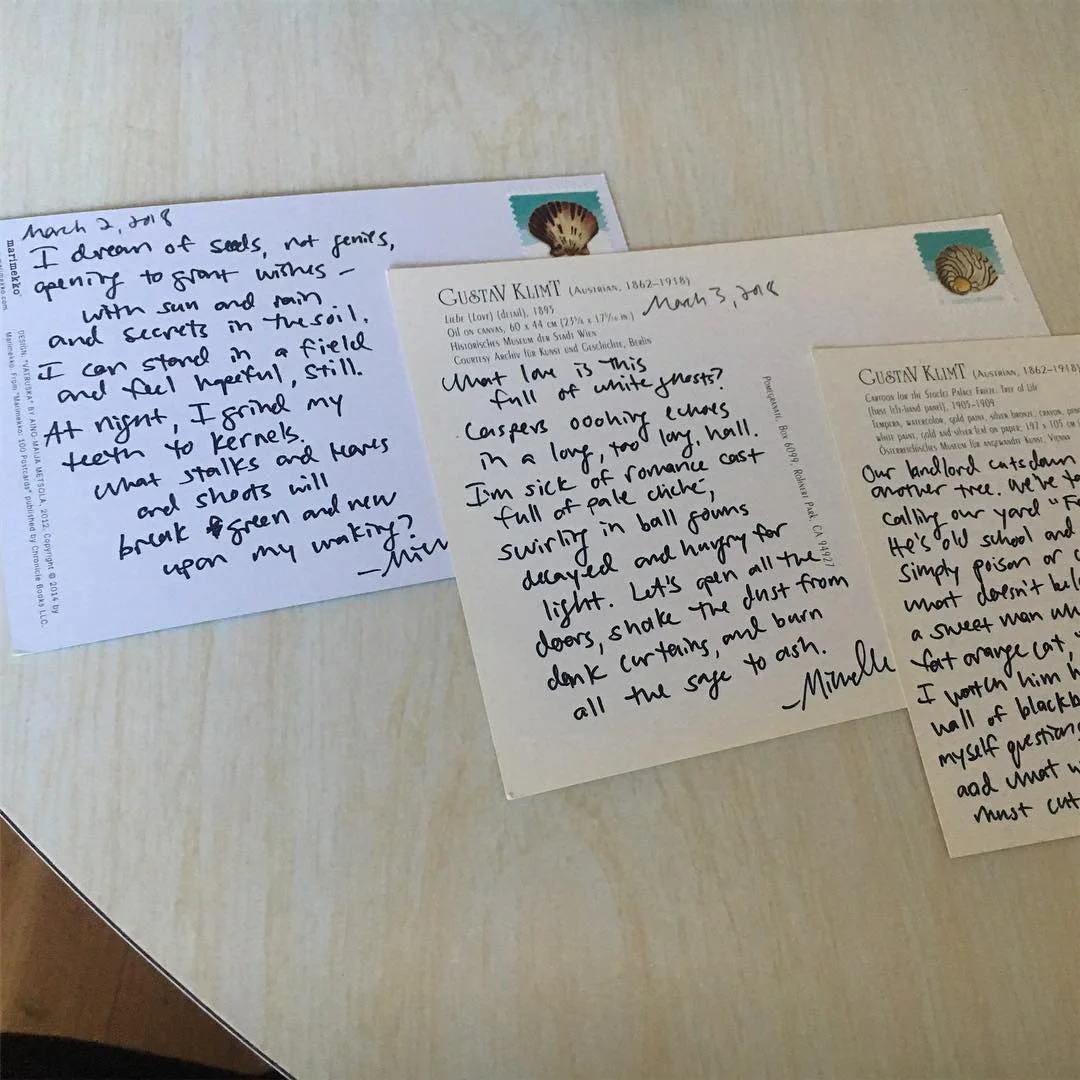 March 2, 2018
I dream of seeds, not genies,
opening to grant wishes –
with sun and rain
and secrets in the soil.
I can stand in a field
and feel hopeful, still.
At night, I grind my
teeth to kernels.
What stalks and leaves
and shoots will
break green and new
upon my waking?
marimekko®
DESIGN: "VATRUSKA" BY AINO-MAIJA METSOLA, 2012. Copyright © 2014 by
Marimekko. From "Marimekko: 100 Postcards" published by Chronicle Books LLC.
GUSTAV KLIMT (AUSTRIAN, 1862–1918)
LIEBE (LOVE) (DETAIL), 1895
OIL ON CANVAS, 60 X 44 CM
HISTORISCHES MUSEUM DER STADT WIEN
COURTESY ARCHIV FÜR KUNST UND GESCHICHTE, BERLIN
March 3, 2018
What love is this
full of white ghosts?
Caspers ooohing echoes
in a long, too long, hall.
I'm sick of romance cast
full of pale cliché,
swirling in ball gowns
decayed and hungry for
light. Let's open all the
doors, shake the dust from
dank curtains, and burn
all the sage to ash.
–Michelle
POMEGRANATE, BOX 6099, ROHNERT PARK, CA 94927
GUSTAV KLIMT (AUSTRIAN, 1862–1918)
CARTOON FOR THE STOCLET PALACE FRIEZE, TREE OF LIFE
(FIRST LEFT-HAND PANEL), 1905–1909
TEMPERA, WATERCOLOR, GOLD PAINT, SILVER BRONZE, CRAYON,
WHITE PAINT, GOLD AND SILVER LEAF ON PAPER, 197 X 105 CM
ÖSTERREICHISCHES MUSEUM FÜR ANGEWANDTE KUNST, VIENNA
Our landlord cuts down
another tree. We're
calling our yard
He's old school and
simply poison or
what doesn't
a sweet man
fat orange cat,
I watch him
wall of
myself questions
and what
must cut